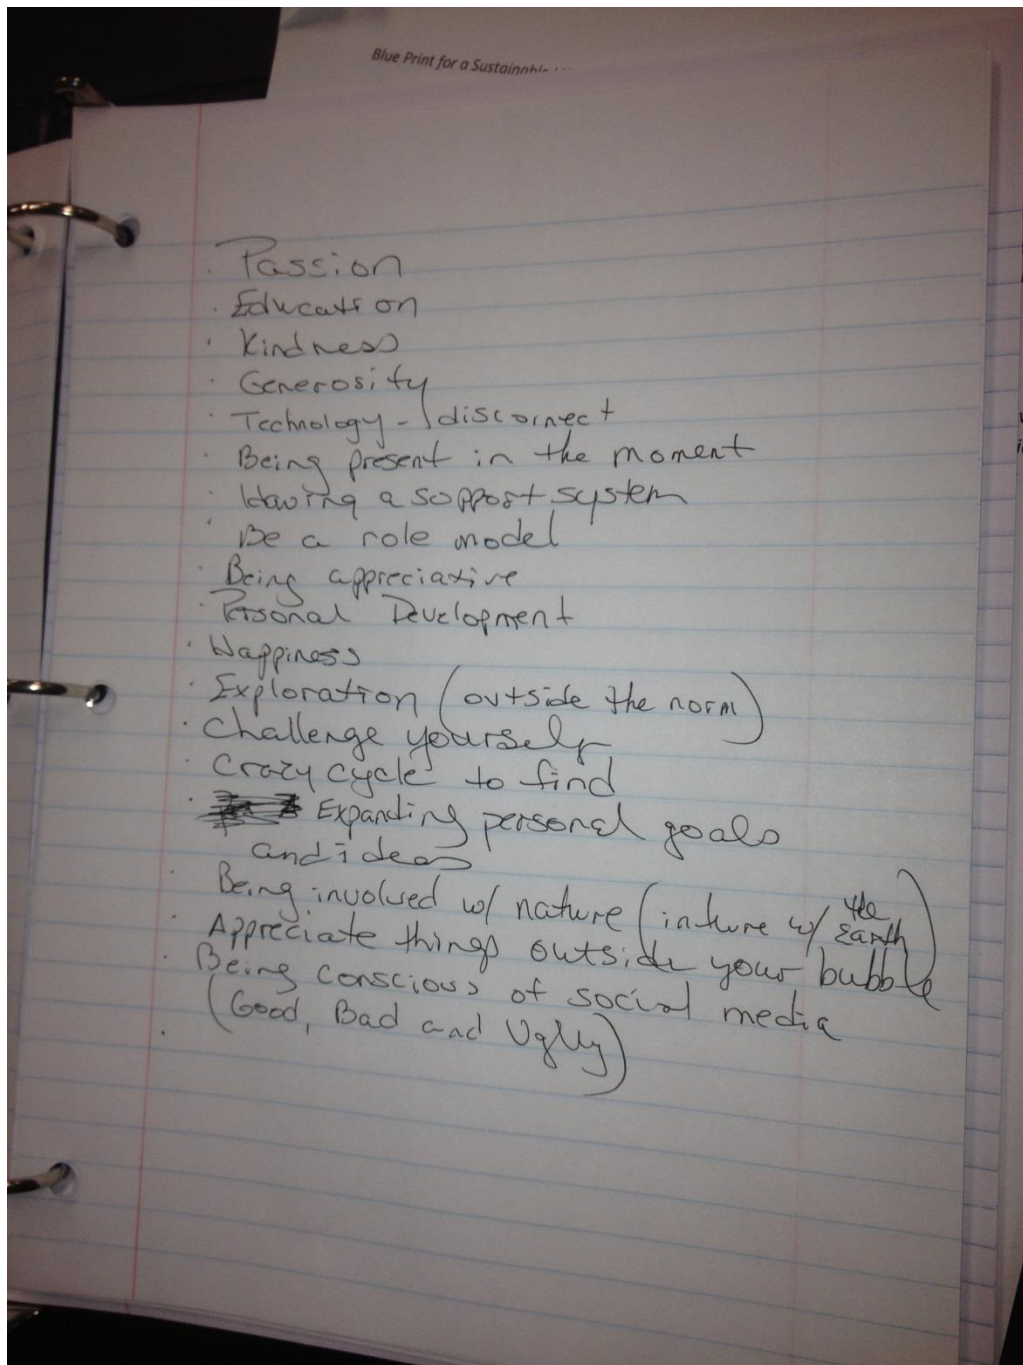 Blue Print for a Sustainable
· Passion
· Education
· Kindness
· Generosity
· Technology - disconnect
· Being present in the moment
· Having a soppost system
· Be a role model
· Being appreciative
· Personal Development
· Happiness
· Exploration (outside the norm)
· Challenge yourself
· Crazy cycle to find
· Expanding personal goals
and ideas
· Being involved w/ nature (inture w/ the Earth)
· Appreciate things outside your bubble
· Being conscious of social media
(Good, Bad and Uglly)
·